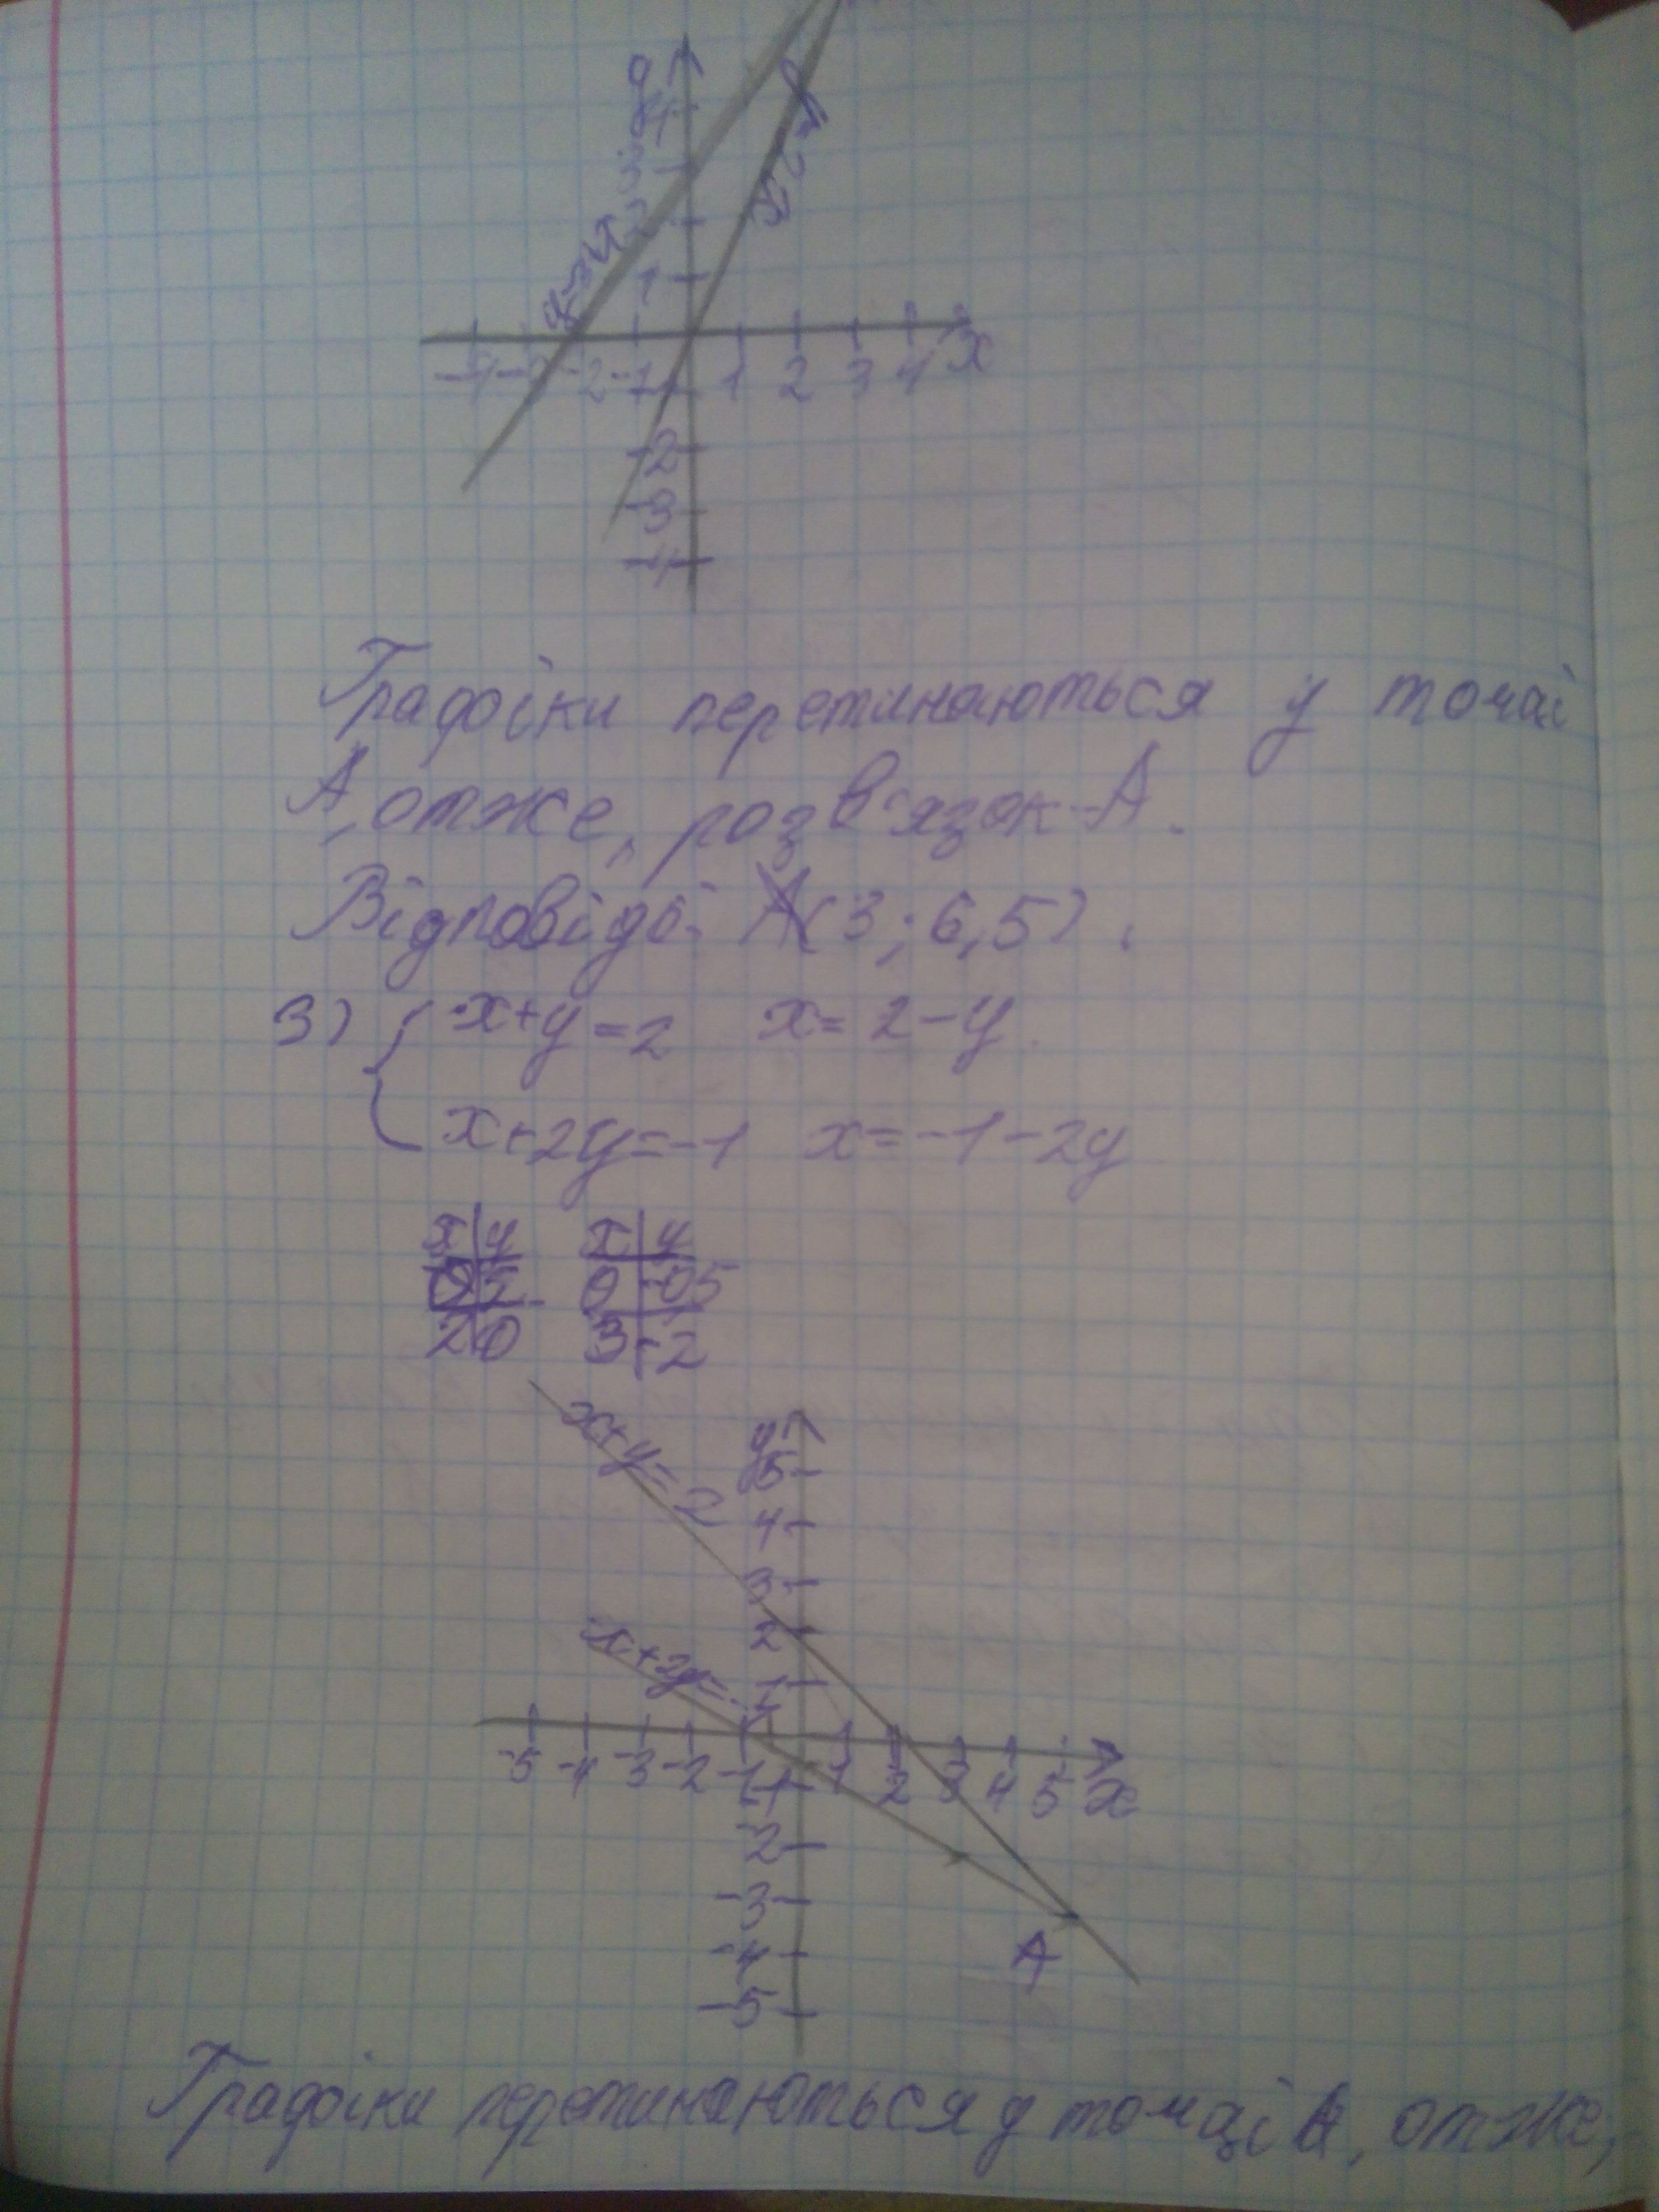 y
4
3
2
1
y=2x
-4 -3 -2 -1 1 2 3 4 x
-2
-3
-4
Графіки перетинаються у точці
А, отже, розв'язок - А.
Відповідь: (3; 6,5).
3) { x+y=2 x=2-y
x+2y=-1 x=-1-2y
x | y x | y
0 | 2 0 | -0,5
2 | 0 3 | -2
x+y=2
y
5
4
3
2
1
x+2y=-1
-5 -4 -3 -2 -1 1 2 3 4 5 x
-1
-2
-3
-4
-5
А
Графіки перетинаються у точці А, отже,